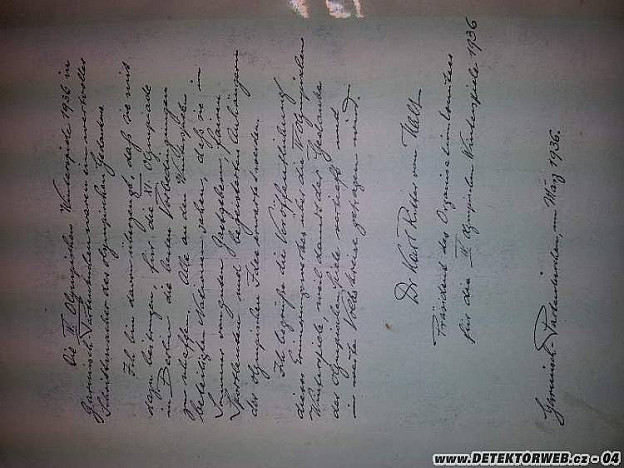 Die IV. Olympischen Winterspiele 1936 in
Garmisch-Partenkirchen waren ein wertvoller
Schrittmacher des olympischen Gedankens.
Ich bin davon überzeugt, daß sie mit
dazu beitragen, für die XI. Olympiade
in Berlin die besten Vorbedingungen
zu schaffen. Alle an den Winterspielen
beteiligten Nationen haben, daß sie im
Sinne
Sportleute und begeisterte Anhänger
der olympischen Idee
Ich begrüße die Veröffentlichung
dieses Erinnerungswerkes über die IV. Olympischen
Winterspiele, weil damit der Gedanke
der Olympischen Spiele vertieft und
in weite Volkskreise getragen wird.
Dr. Karl Ritter von Halt
Präsident des Organisationskomitees
für die IV. Olympischen Winterspiele 1936
Garmisch-Partenkirchen, im März 1936.
www.DETEKTORWEB.cz - 04